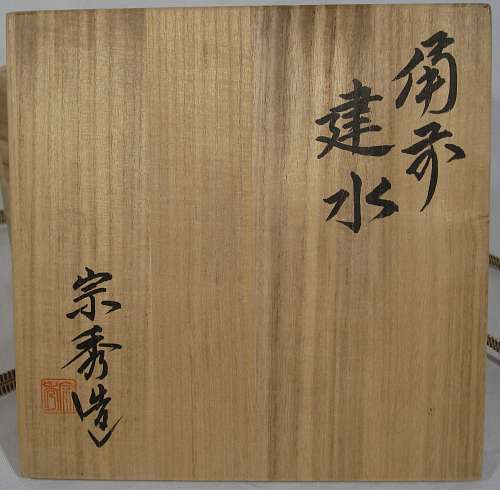 備前
建水
宗秀造